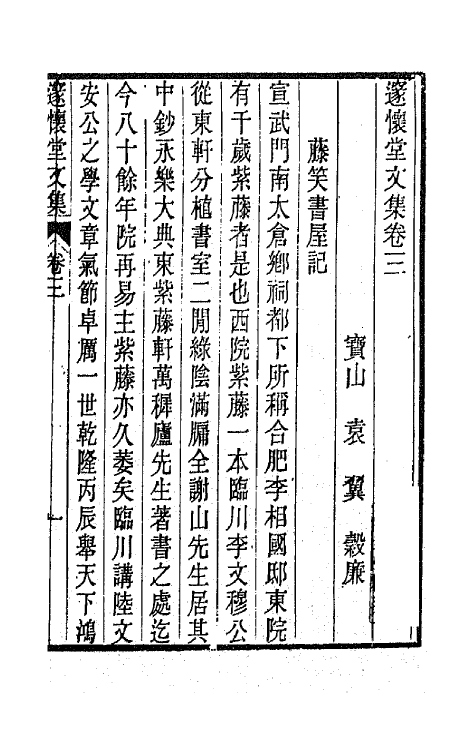 邃懷堂文集卷三
寶山 袁翼 穀廉
藤笑書屋記
宣武門南太倉鄉祠都下所稱合肥李相國邸東院
有千歲紫藤者是也西院紫藤一本臨川李文穆公
從東軒分植書室二閒綠陰滿牖全謝山先生居其
中鈔永樂大典東紫藤軒萬穉廬先生著書之處迄
今八十餘年院再易主紫藤亦久萎矣臨川講陸文
安公之學文章氣節卓厲一世乾隆丙辰舉天下鴻
邃懷堂文集 卷三 一